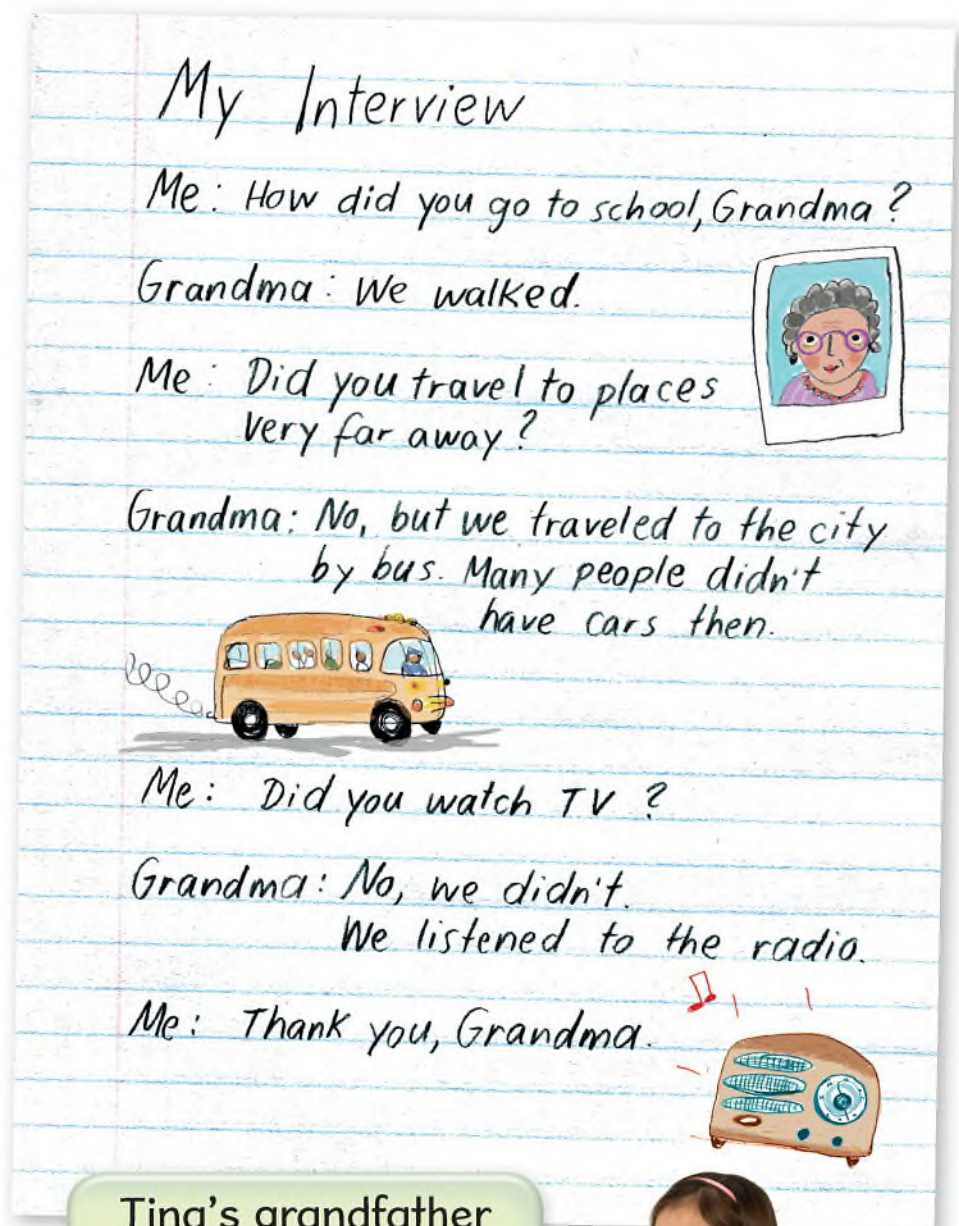 My Interview
Me: How did you go to school, Grandma?
Grandma: We walked.
Me: Did you travel to places
very far away?
Grandma: No, but we traveled to the city
by bus. Many people didn't
have cars then.
Me: Did you watch TV?
Grandma: No, we didn't.
We listened to the radio.
Me: Thank you, Grandma.
Tina's grandfather